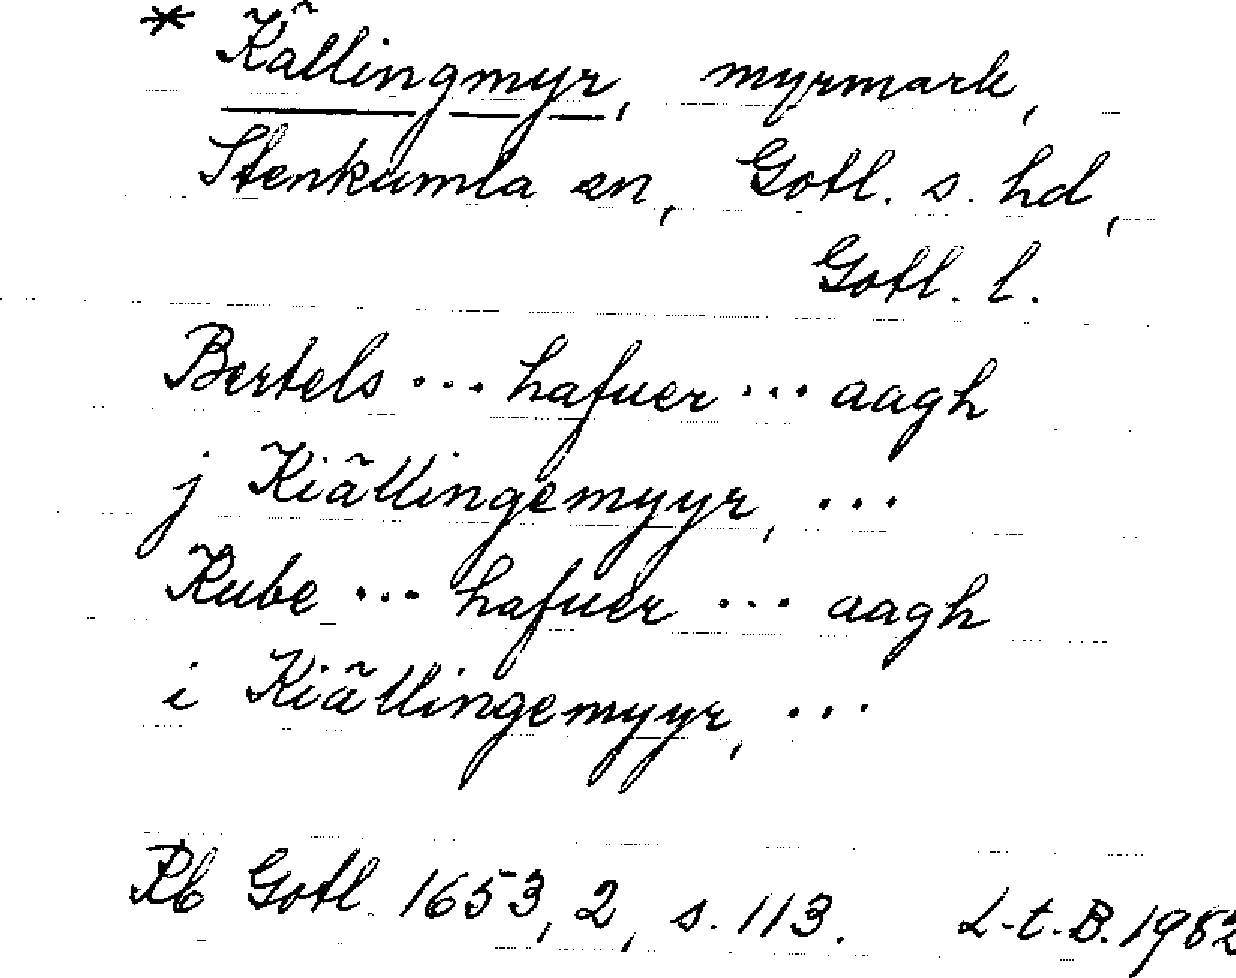 * Källingmyr, myrmark,
Stenkumla sn, Gotl. s. hd,
Gotl. l.
Bertels ... hafuer ... aagh
j Kiällingemyyr, ...
Kube ... hafuer ... aagh
i Kiällingemyyr, ...
Rb Gotl. 1653, 2, s. 113. L-t. B. 1982